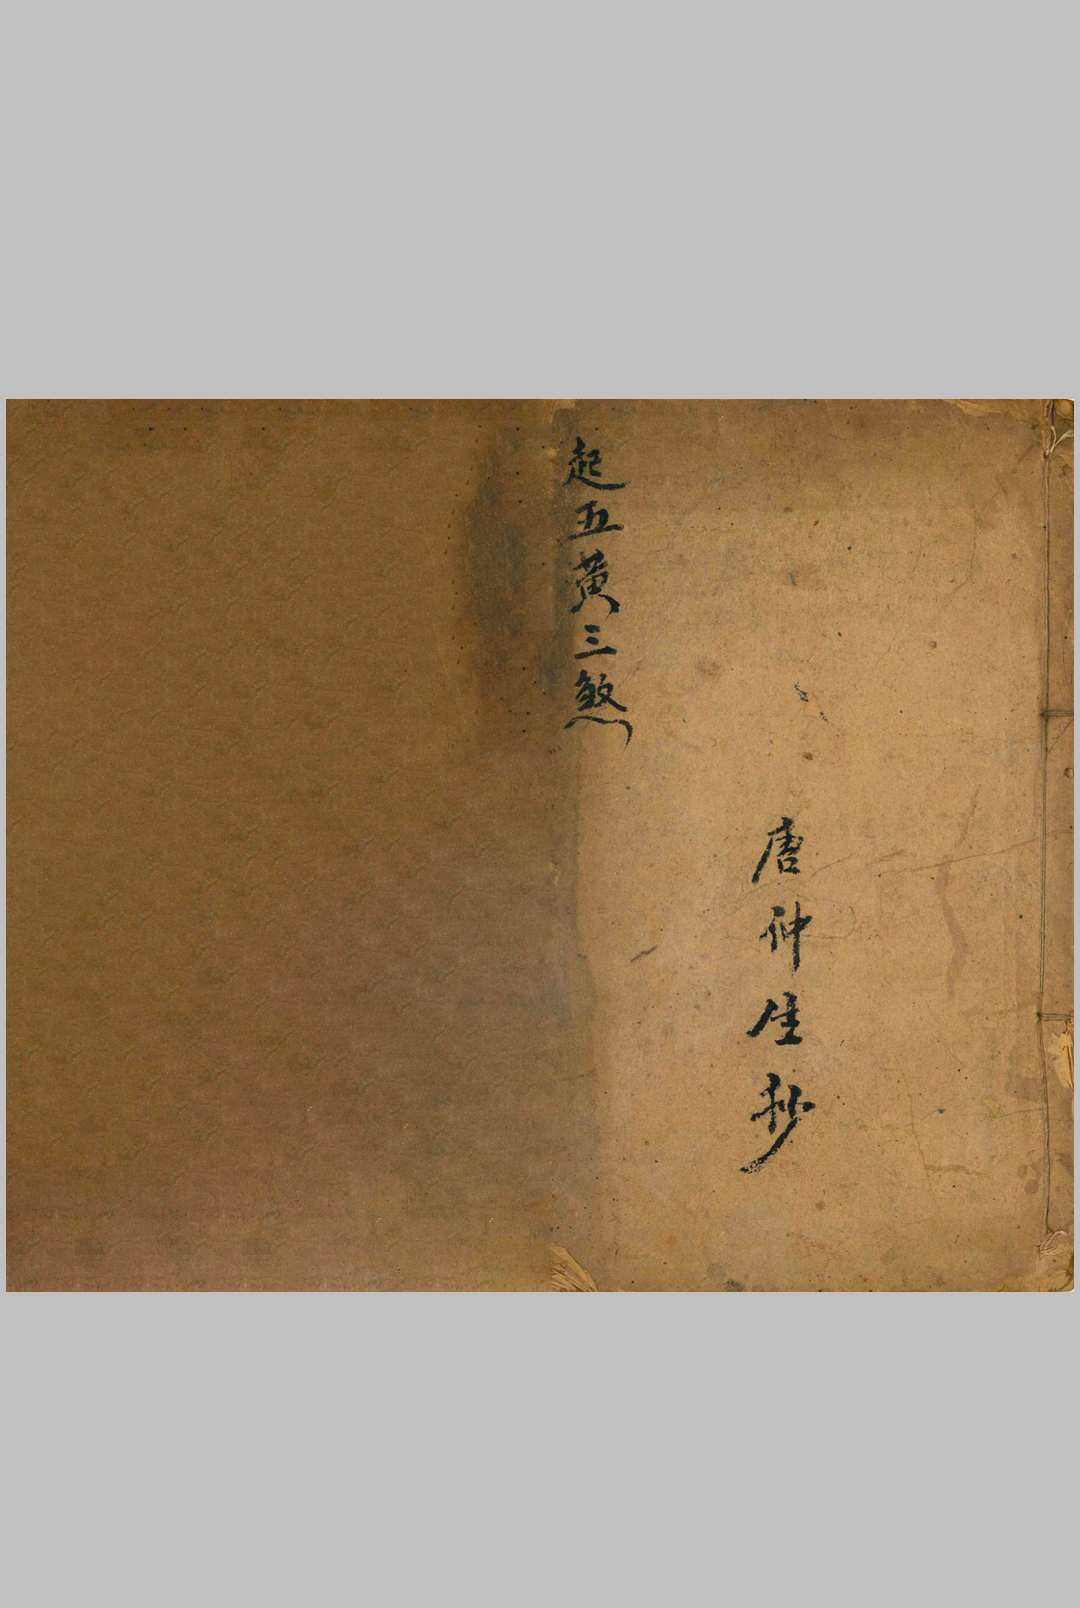 唐仲生抄
起五黄三煞